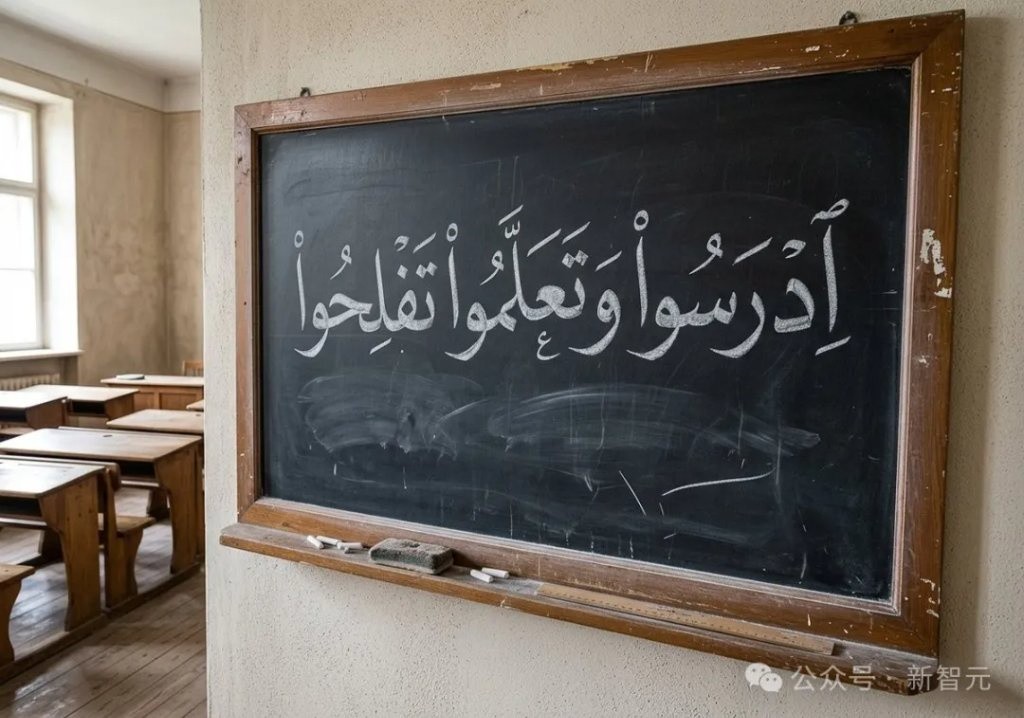 آِدْرَسُواْ وَتَعَلَّمُواْ تَفْلِحُواْ
ع
公众号 · 新智元